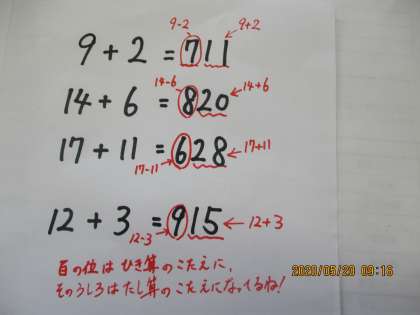 9-2 9+2
9 + 2 = 711
14-6 14+6
14 + 6 = 820
17 + 11 = 628
17-11 17+11
12 + 3 = 915
12-3 12+3
百の位は ひき算のこたえに、
そのうしろはたし算のこたえになってるね!
2020/05/20 09:16